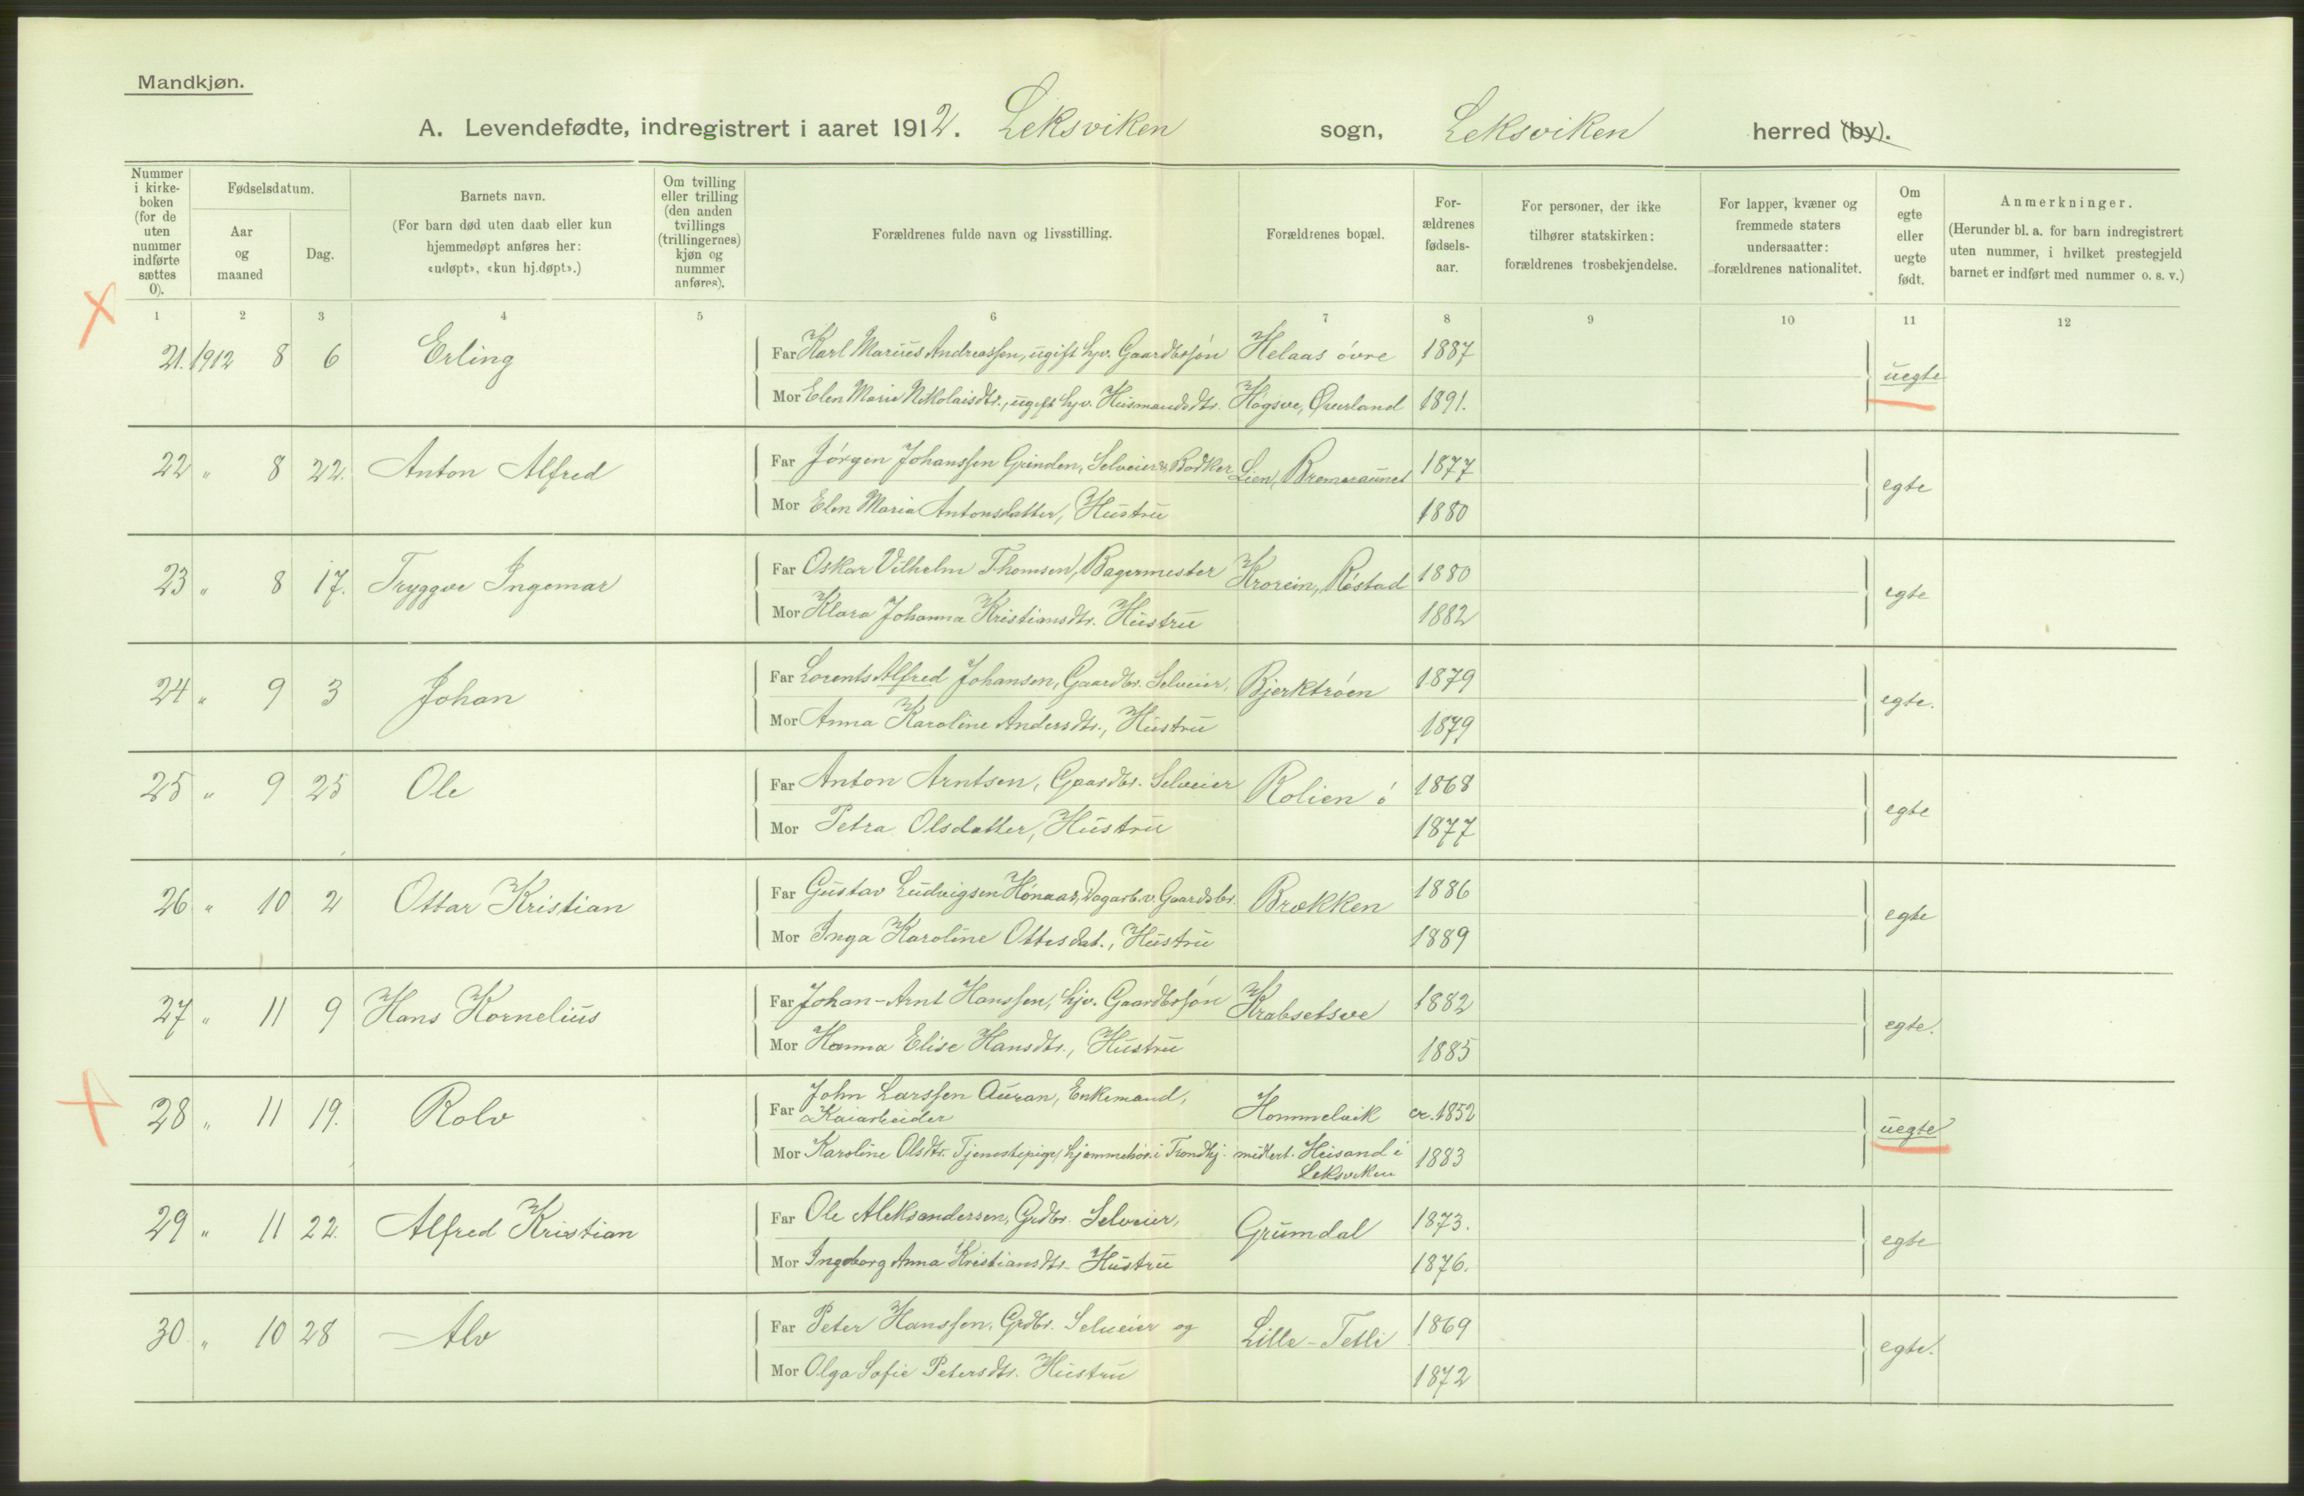 Mandkjøn.
A. Levendefødte, indregistrert i aaret 1912. Leksviken sogn, Leksviken herred (by).
Nummer i kirke-boken (for de uten nummer indførte sættes 0).
Fødselsdatum.
Aar og maaned
Dag.
Barnets navn.
(For barn død uten daab eller kun hjemmedøpt anføres her: «udøpt», «kun hj.døpt».)
Om tvilling eller trilling (den anden tvillings (trillingernes) kjøn og nummer anføres).
Forældrenes fulde navn og livsstilling.
Forældrenes bopæl.
For-ældrenes fødsels-aar.
For personer, der ikke tilhører statskirken: forældrenes trosbekjendelse.
For lapper, kvæner og fremmede staters undersaatter: forældrenes nationalitet.
Om egte eller uegte født.
Anmerkninger.
(Herunder bl. a. for barn indregistrert uten nummer, i hvilket prestegjeld barnet er indført med nummer o. s. v.)
1 2 3 4 5 6 7 8 9 10 11 12
21. 1912 8 6 Erling Far Karl Marius Andreassen, ugift hjv. Gaardbrsøn Helaas øvre 1887 uegte
Mor Elen Marie Nikolaisdtr., ugift hjv. Husmandsdtr. Hogsve, Øverland 1891.
22 " 8 22. Anton Alfred Far Jørgen Johanssen Grinden, Selveier & Bødker Lien, Bremeraunet 1877 egte
Mor Elen Maria Antonsdatter, Hustru 1880
23 " 8 17. Tryggve Ingemar Far Oskar Vilhelm Thomsen, Bagermester Krorein, Røstad 1880 egte
Mor Klara Johanna Kristiansdtr. Hustru 1882
24 " 9 3 Johan Far Lorents Alfred Johansen, Gaardbr. Selveier, Bjerktrøen 1879 egte.
Mor Anna Karoline Andersdtr., Hustru 1879
25 " 9 25 Ole Far Anton Arntsen, Gaardbr. Selveier Rolien ø 1868 egte
Mor Petra Olsdatter, Hustru 1877
26 " 10 2 Ottar Kristian Far Gustav Ludvigsen Hønaas, Dagarb. v. Gaardsbr. Brækken 1886 egte
Mor Inga Karoline Ottesdat., Hustru 1889
27 " 11 9 Hans Kornelius Far Johan-Arnt Hanssen, hjv. Gaardbrsøn Krabsetsve 1882 egte.
Mor Hanna Elise Hansdtr., Hustru 1885
28 " 11 19. Rolv Far John Larssen Auran, Enkemand, Kaiarbeider Hommelvik ca. 1852 uegte
Mor Karoline Olsdtr. Tjenestepige, hjemmehør. i Trondhj. midlert. Heisand i Leksviken 1883
29 " 11 22. Alfred Kristian Far Ole Aleksandersen, Grdbr. Selveier, Grumdal 1873. egte
Mor Ingeborg Anna Kristiansdtr. Hustru 1876.
30 " 10 28 Alv Far Peter Hanssen, Grdbr. Selveier og Lille-Tetli 1869 egte.
Mor Olga Sofie Petersdtr. Hustru 1872